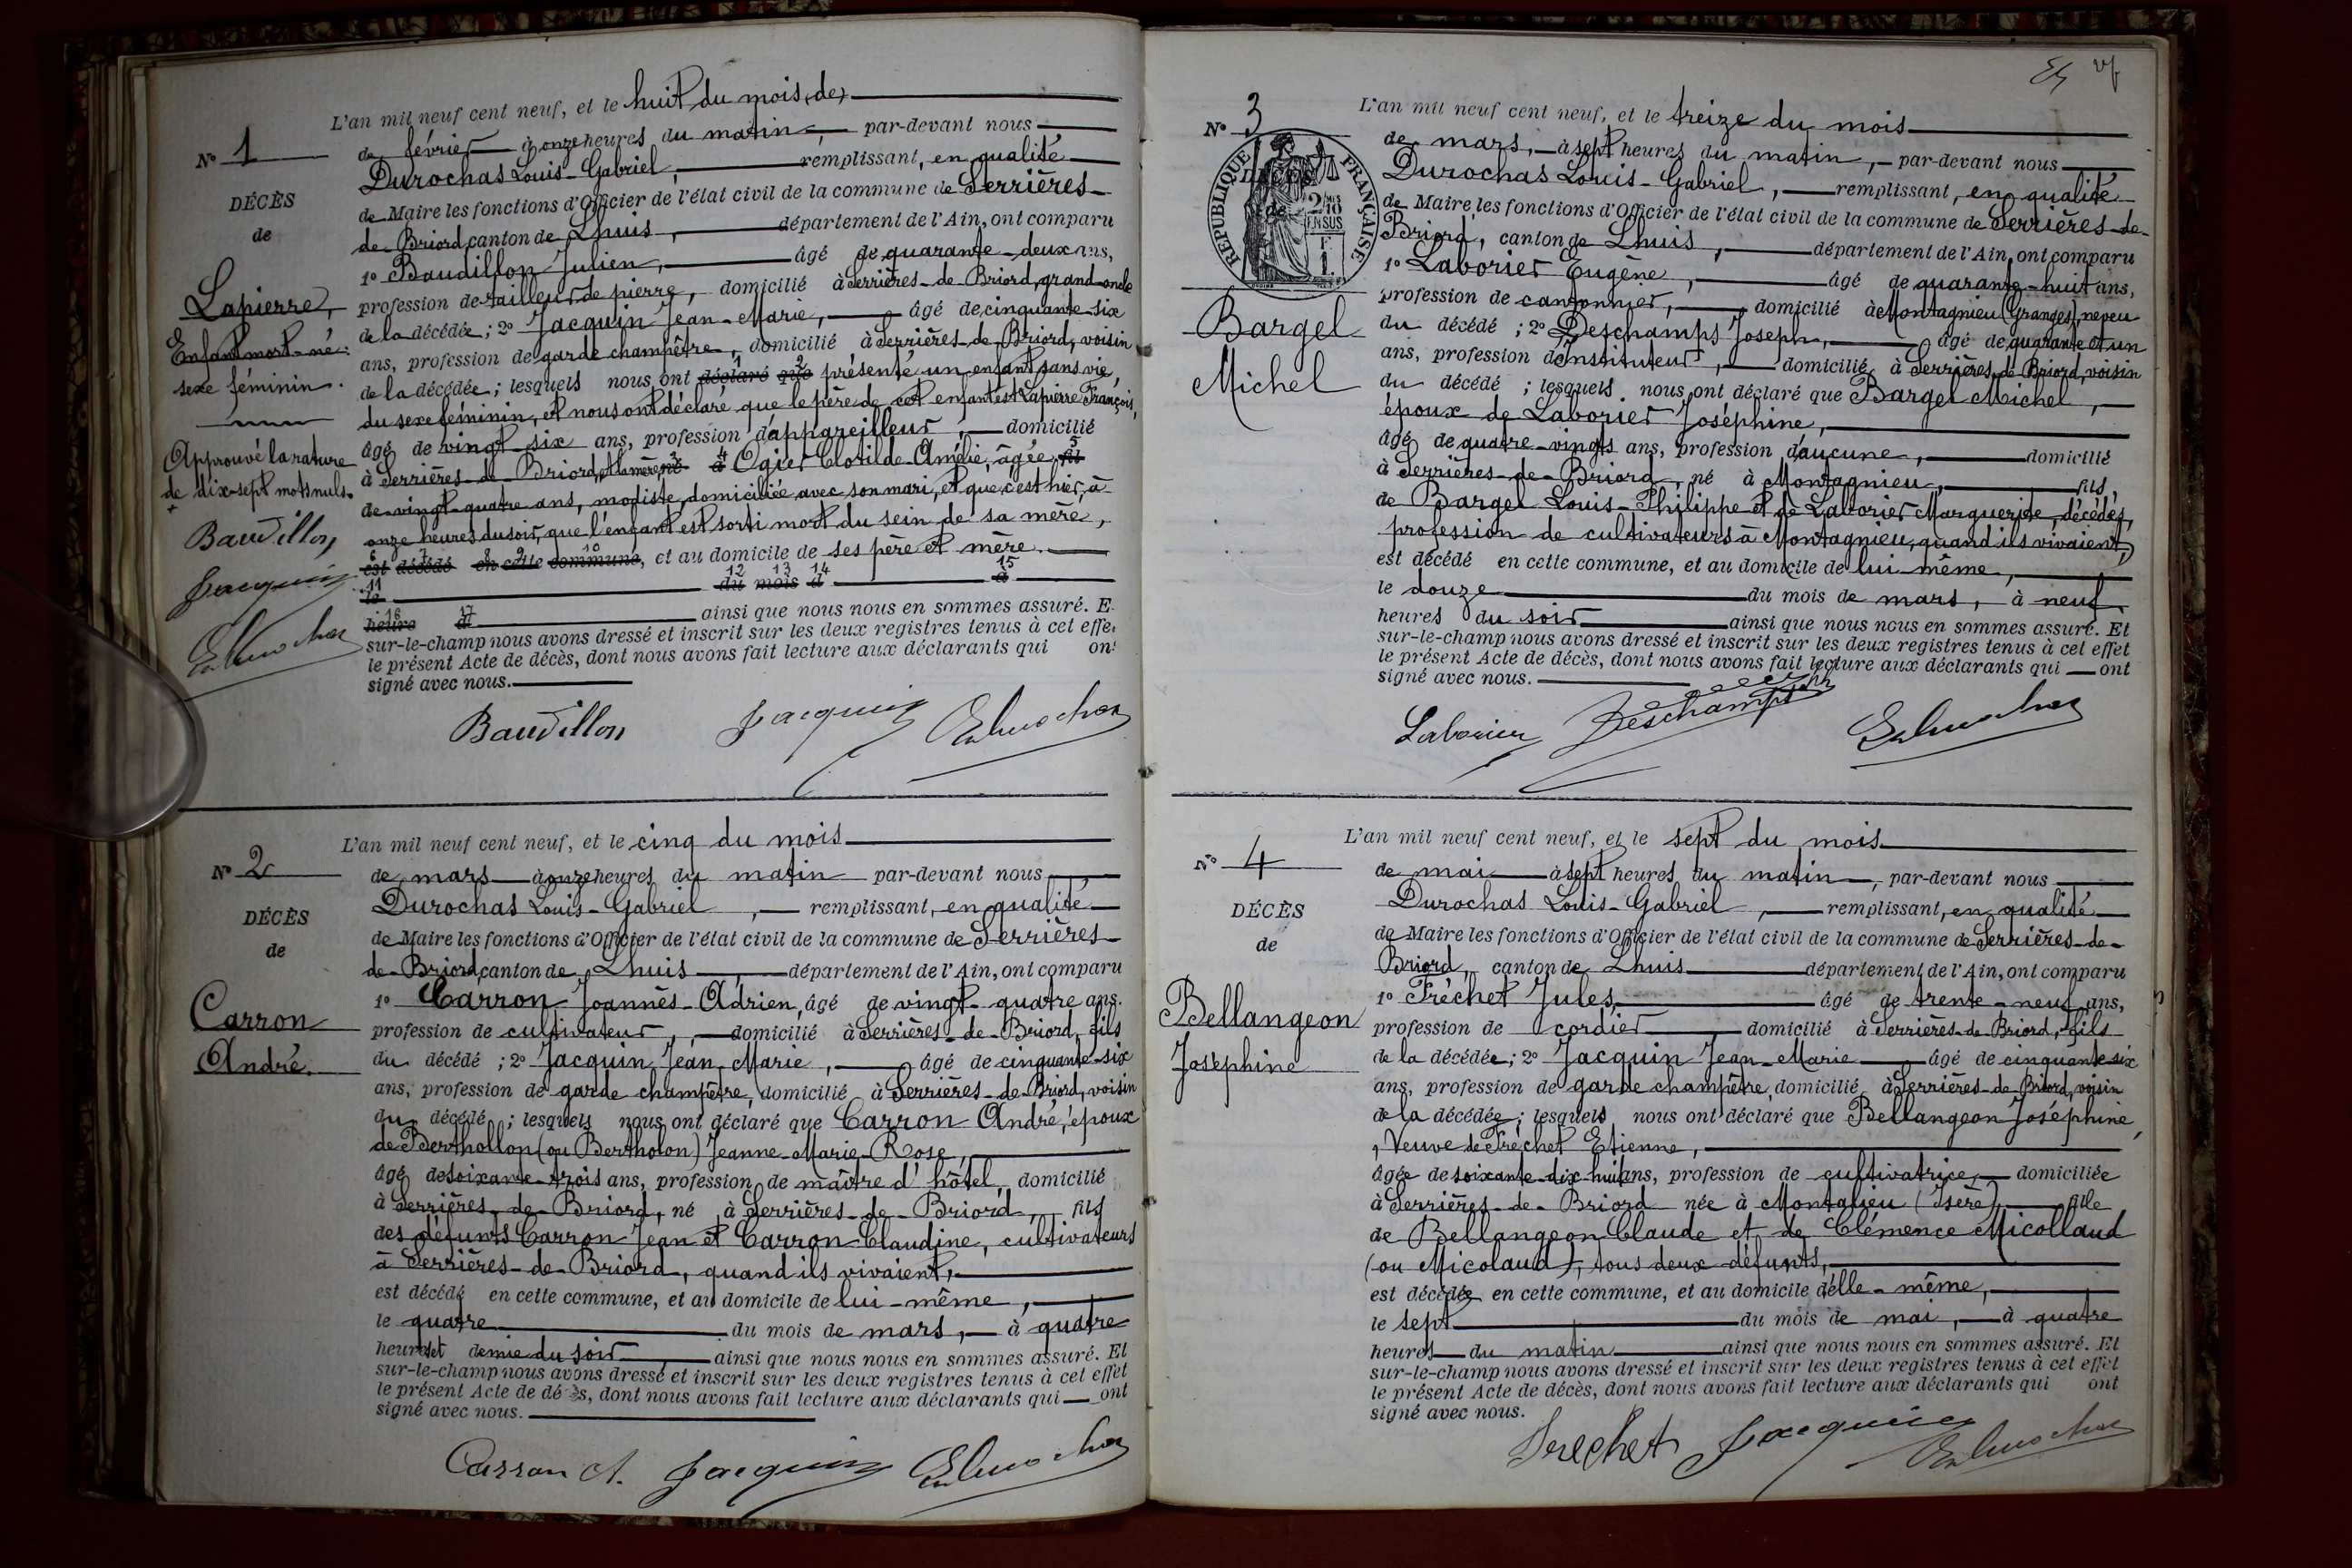 L'an mil neuf cent neuf, et le huit du mois de
N° 1
de février à onze heures du matin, par-devant nous
Durochas Louis-Gabriel, remplissant, en qualité
DÉCÈS
de Maire les fonctions d'Officier de l'état civil de la commune de Serrières-
de
de Briord, canton de Lhuis, département de l'Ain, ont comparu
1° Baudillon Julien, âgé de quarante-deux ans,
Lapierre,
profession de tailleur de pierre, domicilié à Serrières-de-Briord, grand-oncle
de la décédée; 2° Jacquin Jean-Marie, âgé de cinquante-six
Enfant mort-né.
ans, profession de garde champêtre, domicilié à Serrières-de-Briord, voisin
sexe féminin.
de la décédée; lesquels nous ont déclaré que présenté un enfant sans vie,
du sexe féminin, et nous ont déclaré que le père de cet enfant est Lapierre François,
âgé de vingt-six ans, profession d'appareilleur, domicilié
Approuvé la rature
à Serrières-de-Briord, et la mère né à Ogier Clotilde-Amélie, âgée, fil
de dix-sept mots nuls.
de vingt-quatre ans, modiste, domiciliée avec son mari, et que c'est hier, à
onze heures du soir, que l'enfant est sorti mort du sein de sa mère,
Baudillon
est décédé en cette commune, et au domicile de ses père et mère.
Jacquin
le du mois d à
heure d ainsi que nous nous en sommes assuré. E
sur-le-champ nous avons dressé et inscrit sur les deux registres tenus à cet effe
le présent Acte de décès, dont nous avons fait lecture aux déclarants qui on
signé avec nous.
Baudillon Jacquin
L'an mil neuf cent neuf, et le cinq du mois
N° 2
de mars à onze heures du matin par-devant nous
Durochas Louis-Gabriel, remplissant, en qualité
DÉCÈS
de Maire les fonctions d'Officier de l'état civil de la commune de Serrières-
de
de-Briord, canton de Lhuis, département de l'Ain, ont comparu
1° Carron Joannès-Adrien, âgé de vingt-quatre ans.
Carron
profession de cultivateur, domicilié à Serrières-de-Briord, fils
André.
du décédé; 2° Jacquin Jean-Marie, âgé de cinquante-six
ans, profession de garde champêtre, domicilié à Serrières-de-Briord, voisin
du décédé; lesquels nous ont déclaré que Carron André, époux
de Berthollon (ou Bertholon) Jeanne-Marie-Rose,
âgé de soixante-trois ans, profession de maître d'hôtel, domicilié
à Serrières-de-Briord, né à Serrières-de-Briord, fils
des défunts Carron Jean et Carron Claudine, cultivateurs
à Serrières-de-Briord, quand ils vivaient,
est décédé en cette commune, et au domicile de lui-même,
le quatre du mois de mars, à quatre
heures et demie du soir ainsi que nous nous en sommes assuré. Et
sur-le-champ nous avons dressé et inscrit sur les deux registres tenus à cet effet
le présent Acte de décès, dont nous avons fait lecture aux déclarants qui ont
signé avec nous.
Carron A. Jacquin
L'an mil neuf cent neuf, et le treize du mois
N° 3
de mars, à sept heures du matin, par-devant nous
Durochas Louis-Gabriel, remplissant, en qualité
RÉPUBLIQUE FRANÇAISE
DÉCÈS
de
2/10 EN SUS
de Maire les fonctions d'Officier de l'état civil de la commune de Serrières-de-
Briord, canton de Lhuis, département de l'Ain, ont comparu
1° Laborier Eugène, âgé de quarante-huit ans,
profession de cantonnier, domicilié à Montagnieu (Granges), neveu
Bargel
du décédé; 2° Deschamps Joseph, âgé de quarante et un
ans, profession d'Instituteur, domicilié à Serrières-de-Briord, voisin
Michel
du décédé; lesquels nous ont déclaré que Bargel Michel,
époux de Laborier Joséphine,
âgé de quatre-vingts ans, profession d'aucune, domicilié
à Serrières-de-Briord, né à Montagnieu, fils
de Bargel Louis-Philippe et de Laborier Marguerite, décédés,
profession de cultivateurs à Montagnieu, quand ils vivaient,
est décédé en cette commune, et au domicile de lui-même,
le douze du mois de mars, à neuf
heures du soir ainsi que nous nous en sommes assuré. Et
sur-le-champ nous avons dressé et inscrit sur les deux registres tenus à cet effet
le présent Acte de décès, dont nous avons fait lecture aux déclarants qui ont
signé avec nous.
Laborier Deschamps Joseph
L'an mil neuf cent neuf, et le sept du mois
N° 4
de mai à sept heures du matin, par-devant nous
Durochas Louis-Gabriel, remplissant, en qualité
DÉCÈS
de Maire les fonctions d'Officier de l'état civil de la commune de Serrières-de-
de
Briord, canton de Lhuis département de l'Ain, ont comparu
1° Fréchet Jules, âgé de trente-neuf ans,
Bellangeon
profession de cordier, domicilié à Serrières-de-Briord, fils
Joséphine
de la décédée; 2° Jacquin Jean-Marie âgé de cinquante-six
ans, profession de garde champêtre, domicilié à Serrières-de-Briord, voisin
de la décédée; lesquels nous ont déclaré que Bellangeon Joséphine,
Veuve de Fréchet Etienne,
âgée de soixante-dix-huit ans, profession de cultivatrice, domiciliée
à Serrières-de-Briord née à Montalieu (Isère), fille
de Bellangeon Claude et de Clémence Micollaud
(ou Micolaud), tous deux défunts,
est décédée en cette commune, et au domicile d'elle-même,
le sept du mois de mai, à quatre
heures du matin ainsi que nous nous en sommes assuré. Et
sur-le-champ nous avons dressé et inscrit sur les deux registres tenus à cet effet
le présent Acte de décès, dont nous avons fait lecture aux déclarants qui ont
signé avec nous.
Frechet Jacquin